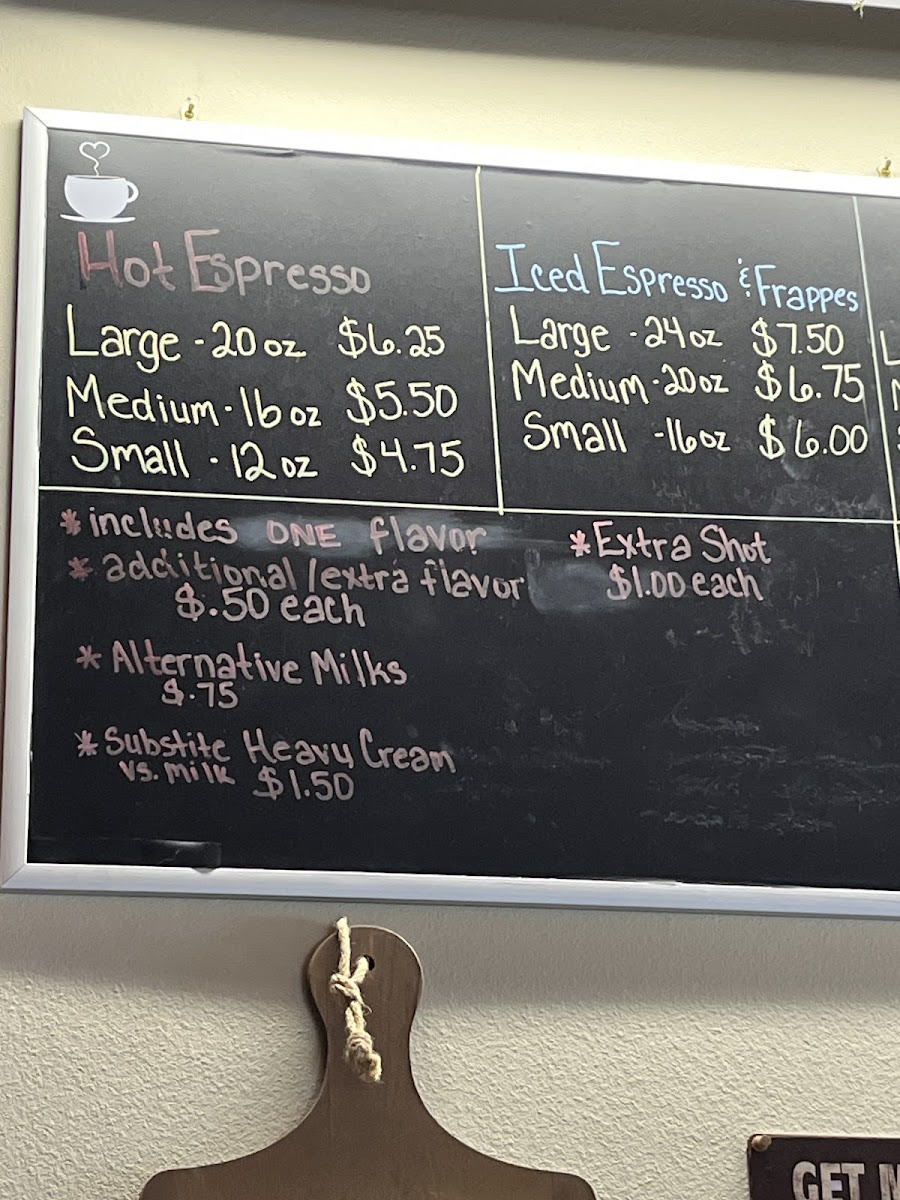 Hot Espresso
Large - 20 oz $6.25
Medium - 16 oz $5.50
Small - 12 oz $4.75
Iced Espresso & Frappes
Large - 24 oz $7.50
Medium - 20 oz $6.75
Small - 16 oz $6.00
* includes ONE flavor
* additional / extra flavor
$.50 each
* Alternative Milks
$.75
* Substite Heavy Cream
vs. milk $1.50
* Extra Shot
$1.00 each
GET